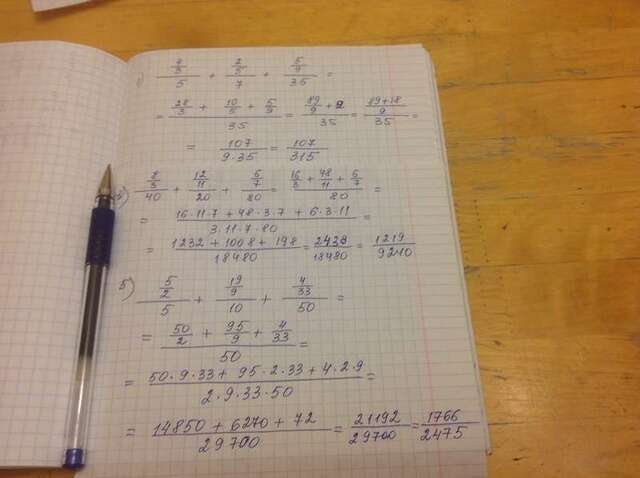 ) 4/3 / 5 + 2/5 / 7 + 5/9 / 35 =
= (28/3 + 10/5 + 5/9) / 35 = (89/9 + 2) / 35 = (89+18)/9 / 35 =
= 107 / 9·35 = 107 / 315
3) 8/3 / 40 + 12/11 / 20 + 6/7 / 80 = (16/3 + 48/11 + 6/7) / 80 =
= (16·11·7 + 48·3·7 + 6·3·11) / 3·11·7·80 =
= (1232 + 1008 + 198) / 18480 = 2438 / 18480 = 1219 / 9240
5) 5/2 / 5 + 19/9 / 10 + 4/33 / 50 =
= (50/2 + 95/9 + 4/33) / 50 =
= (50·9·33 + 95·2·33 + 4·2·9) / 2·9·33·50 =
= (14850 + 6270 + 72) / 29700 = 21192 / 29700 = 1766 / 2475